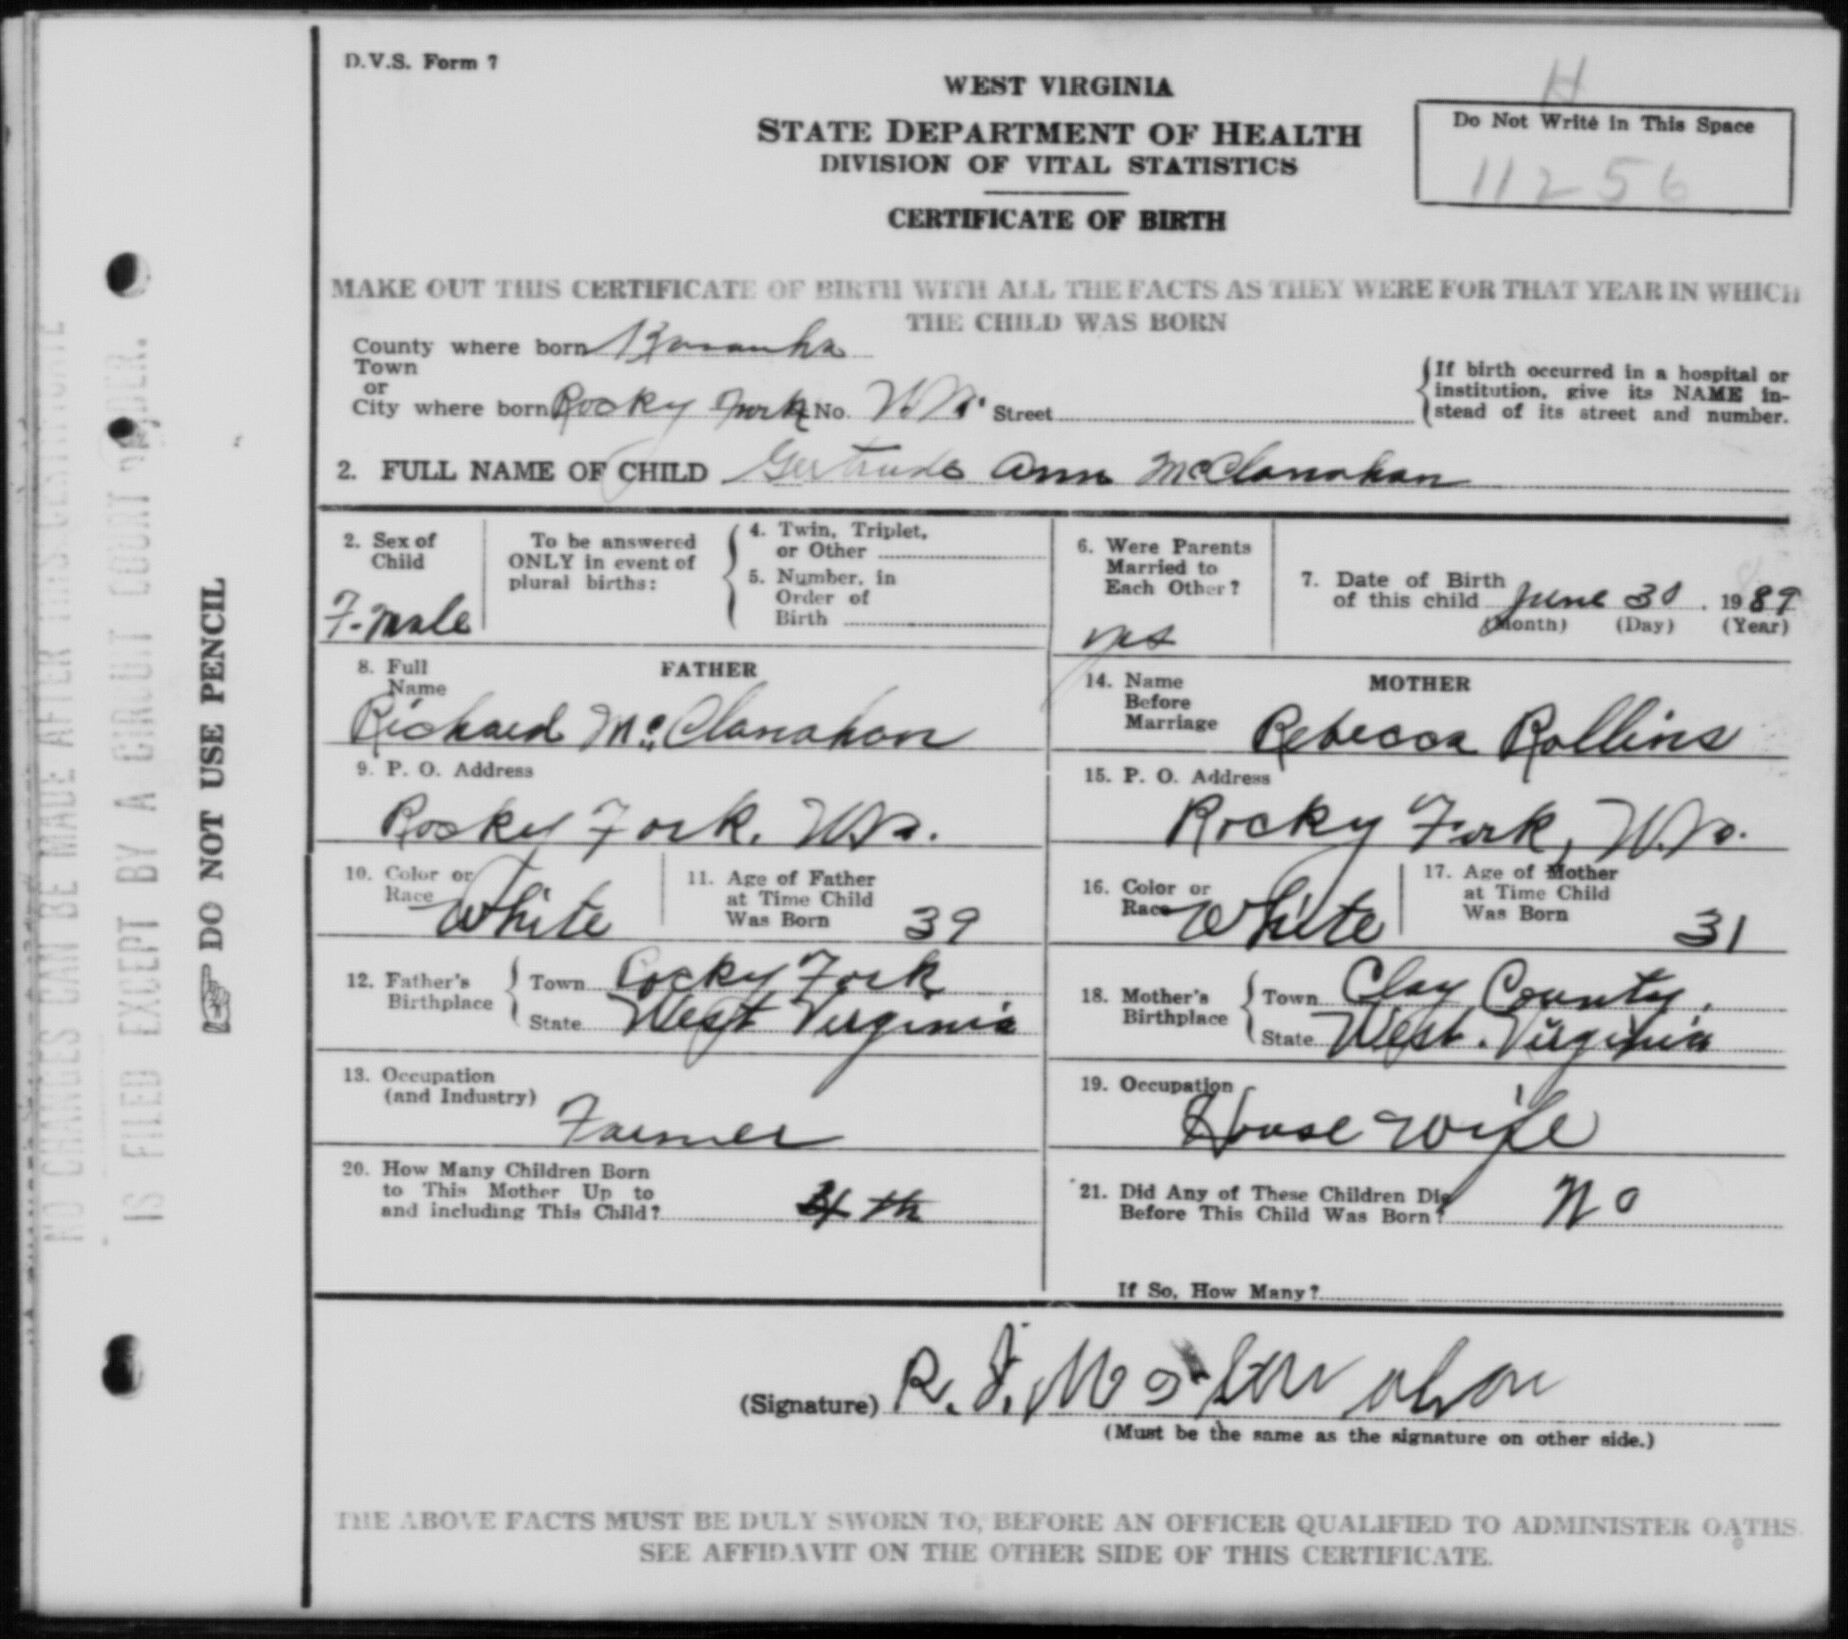 D.V.S. Form 7
H
WEST VIRGINIA
STATE DEPARTMENT OF HEALTH
DIVISION OF VITAL STATISTICS
CERTIFICATE OF BIRTH
Do Not Write in This Space
11256
MAKE OUT THIS CERTIFICATE OF BIRTH WITH ALL THE FACTS AS THEY WERE FOR THAT YEAR IN WHICH
THE CHILD WAS BORN
County where born Kanawha
Town
or
City where born Rocky Fork No. W.Va. Street
If birth occurred in a hospital or
institution, give its NAME in-
stead of its street and number.
2. FULL NAME OF CHILD Gertrude Ann McClanahan
2. Sex of
Child
F-male
To be answered
ONLY in event of
plural births:
4. Twin, Triplet,
or Other
5. Number, in
Order of
Birth
6. Were Parents
Married to
Each Other?
yes
7. Date of Birth
of this child June 30, 1989
(Month) (Day) (Year)
8. Full
Name
FATHER
Richard McClanahan
14. Name
Before
Marriage
MOTHER
Rebecca Rollins
9. P. O. Address
Rocky Fork, W.Va.
15. P. O. Address
Rocky Fork, W.Va.
10. Color or
Race White
11. Age of Father
at Time Child
Was Born 39
16. Color or
Race White
17. Age of Mother
at Time Child
Was Born 31
12. Father's
Birthplace
Town Rocky Fork
State West Virginia
18. Mother's
Birthplace
Town Clay County,
State West. Virginia
13. Occupation
(and Industry)
Farmer
19. Occupation
House wife
20. How Many Children Born
to This Mother Up to
and including This Child? 4th
21. Did Any of These Children Die
Before This Child Was Born? No
If So, How Many?
(Signature) R. F. McClanahan
(Must be the same as the signature on other side.)
THE ABOVE FACTS MUST BE DULY SWORN TO, BEFORE AN OFFICER QUALIFIED TO ADMINISTER OATHS.
SEE AFFIDAVIT ON THE OTHER SIDE OF THIS CERTIFICATE.
DO NOT USE PENCIL
NO CHANGES CAN BE MADE AFTER THIS CERTIFICATE
IS FILED EXCEPT BY A CIRCUIT COURT ORDER.